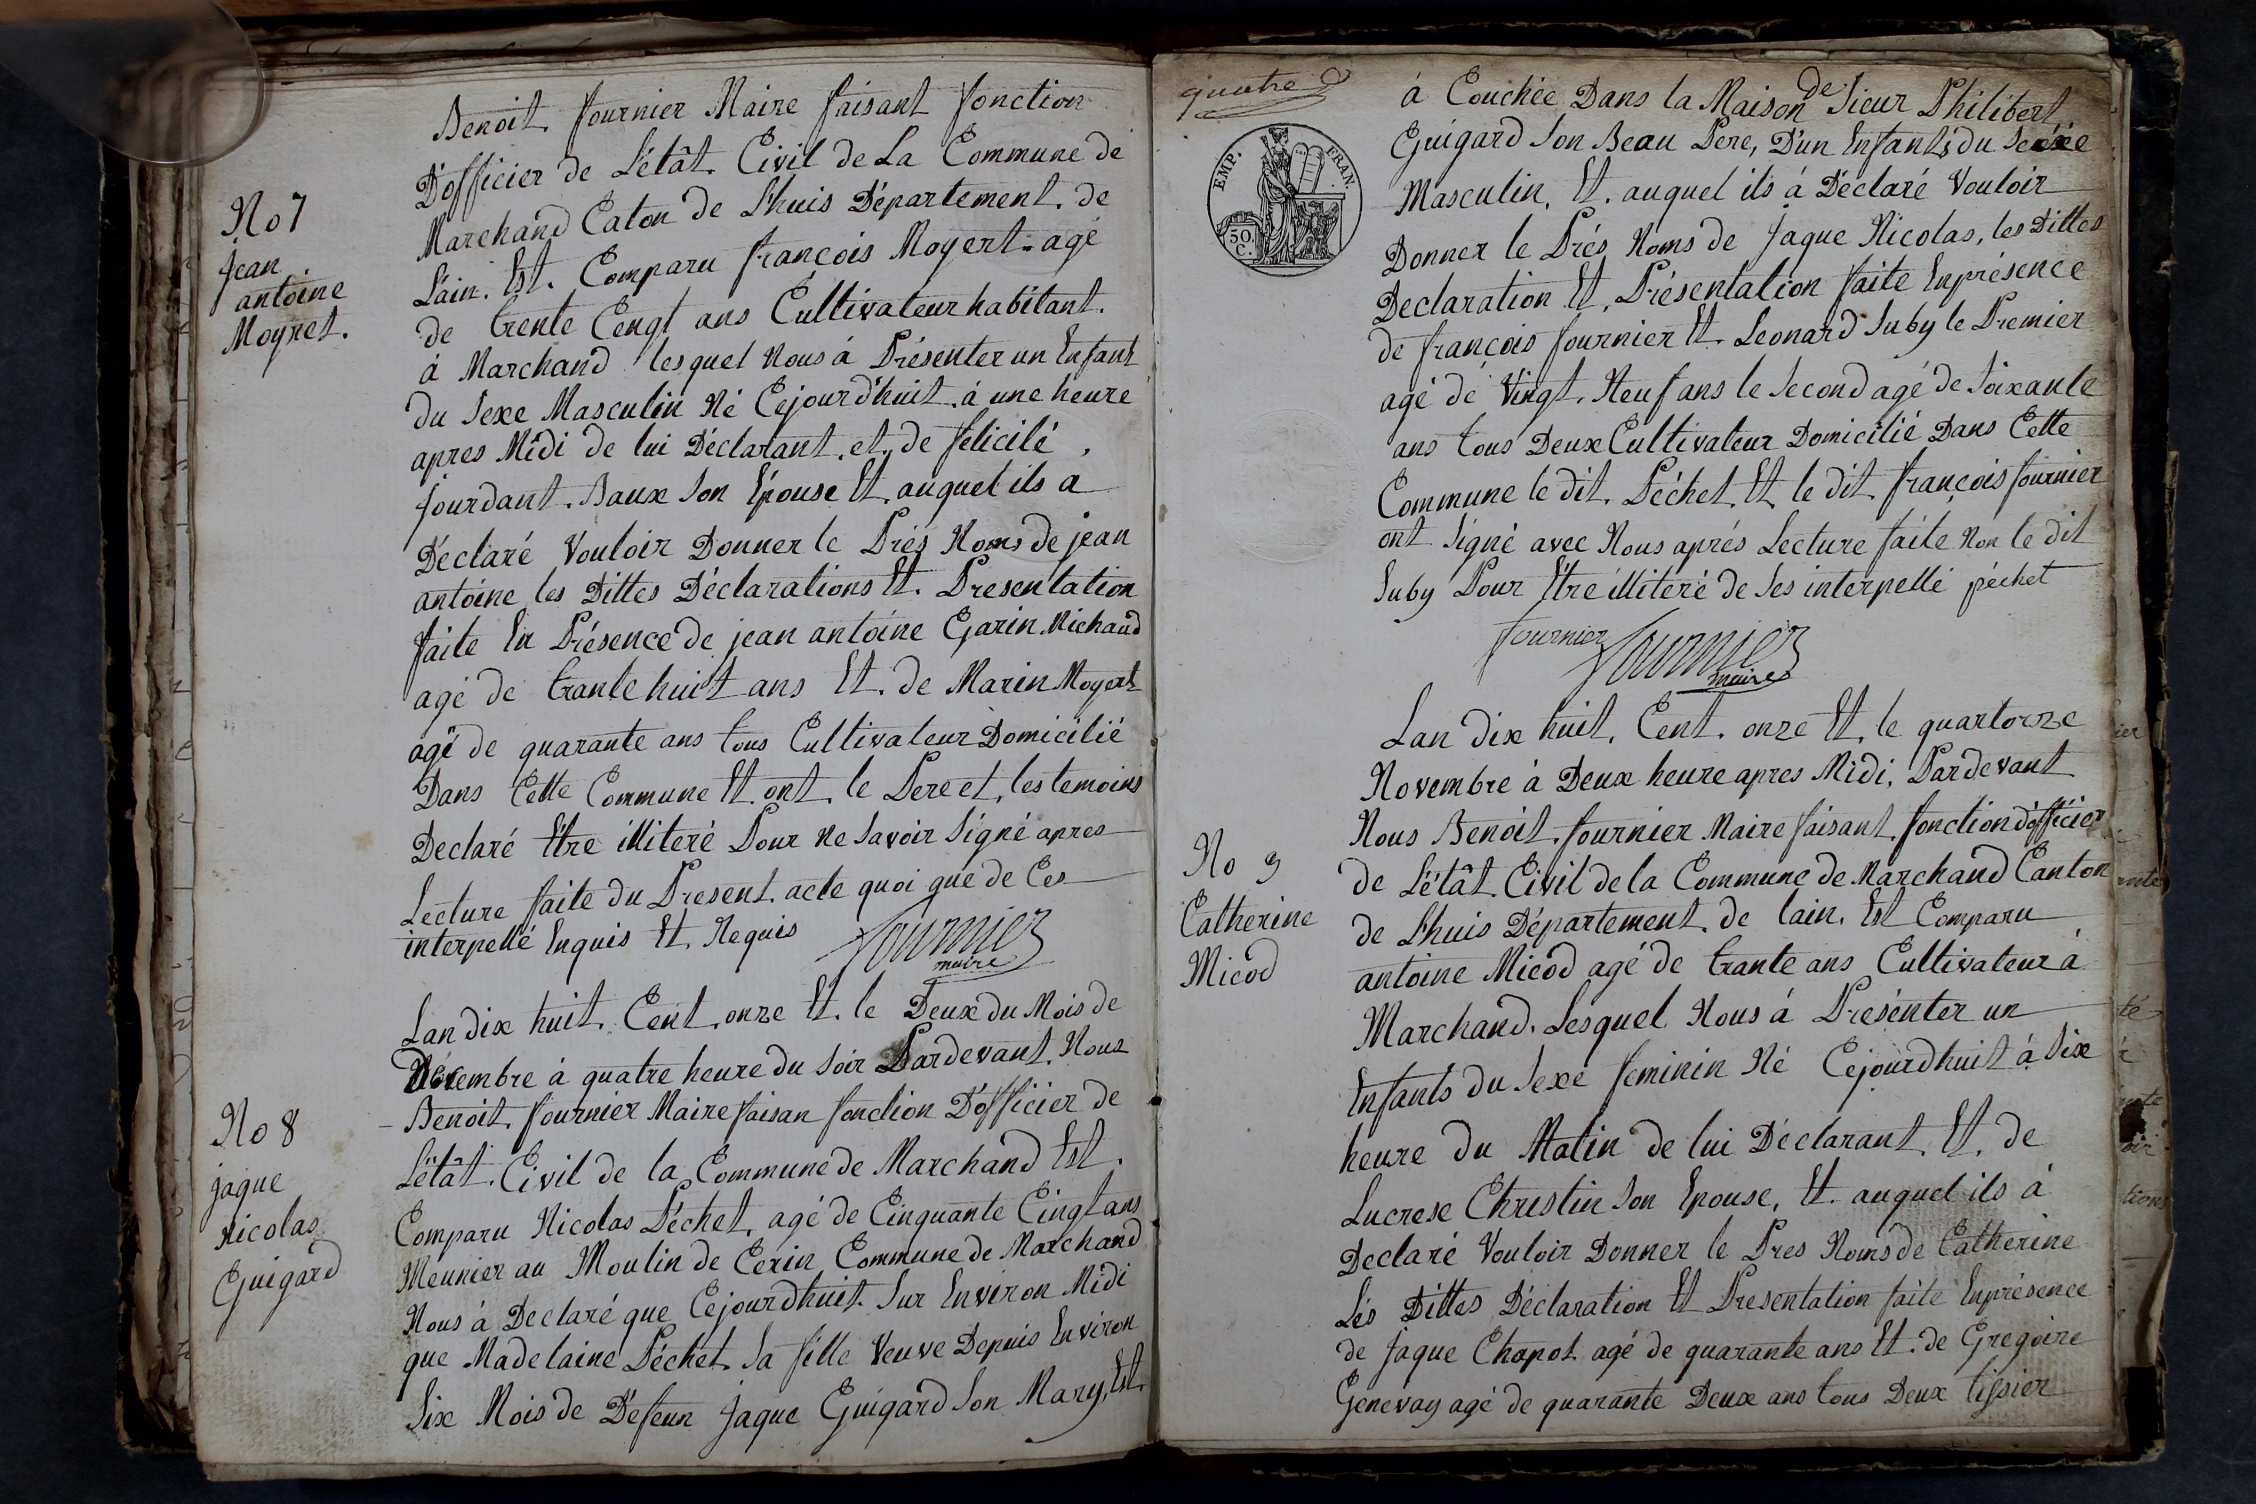 Benoit fournier Maire faisant fonction
D'officier de L'êtât Civil de La Commune de
Marchand Caton de L'huis Département de
L'ain. Est. Comparu françois Moyert agé
de trente Cengt ans Cultivateur habitant
à Marchand lesquel nous à Présenter un Enfant
du Sexe Masculin Né Cejourd'huit à une heure
apres Midi de lui Déclarant et de félicité
jourdant Baux Son Epouse Et auquel ils a
Déclaré Vouloir Donner le Prés Noms de jean
antoine les Dittes Déclarations Et. Presentation
faite En Présence de jean antoine Garin Michaud
agé de trante huit ans Et. de Marin Moyert
agé de quarante ans tous Cultivateur Domicilié
Dans Cette Commune Et ont le Pere et les temoins
Declaré Etre illiteré Pour Ne Savoir Signé apres
Lecture faite du Present acte quoi que de Ces
interpellé Enquis Et Requis
Fournier
maire
No 7
jean
antoine
Moyret.
Lan dix huit Cent onze Et. le Deux du Mois de
Novembre à quatre heure du Soir Pardevant Nous
Benoit fournier Maire faisan fonction D'officier de
L'êtât Civil de la Commune de Marchand Est
Comparu Nicolas Péchet, agé de Cinquante Cingt ans
Meunier au Moulin de Cerin Commune de Marchand
Nous à Declaré que Cejourdhuit Sur Environ Midi
que Madelaine Péchet Sa fille Veuve Depuis Environ
Six Mois de Defeun jaque Guigard Son Mary, Est
No 8
jaque
nicolas
Guigard
quatre
EMP. FRAN.
50.
C.
à Couchée Dans la Maison de Sieur Philibert
Guigard Son Beau Pere, D'un Enfants du Sexe
Masculin, Et. auquel ils à Déclaré Vouloir
Donner le Prés Noms de Jaque Nicolas, les Dittes
Declaration Et Présentation faite Enprésence
de françois fournier Et Leonard Suby le Premier
agé de Vingt Neuf ans le Second agé de Soixante
ans tous Deux Cultivateur Domicilié Dans Cette
Commune le dit Péchet Et le dit françois fournier
ont Signé avec Nous aprés Lecture faite Non le dit
Suby Pour Etre illiteré de Ses interpellé péchet
fournier Fournier
maire
Lan dix huit Cent onze Et le quartorze
Novembre à Deux heure apres Midi, Pardevant
Nous Benoit fournier Maire faisant fonction d'officier
de L'êtât Civil de la Commune de Marchand Canton
de L'huis Département de lain. Est Comparu
antoine Micod agé de trante ans Cultivateur à
Marchand. Lesquel Nous à Présenter un
Enfants du Sexe feminin Né Cejourdhuit à Six
heure du Matin de lui Déclarant Et. de
Lucrese Christin Son Epouse, Et auquel ils à
Declaré Vouloir Donner le Pres Noms de Catherine
Lés Dittes Déclaration Et Presentation faite Enprésence
de Jaque Chapot agé de quarante ans Et. de Gregoire
Genevay agé de quarante Deux ans tous Deux tissier
No 9
Catherine
Micod